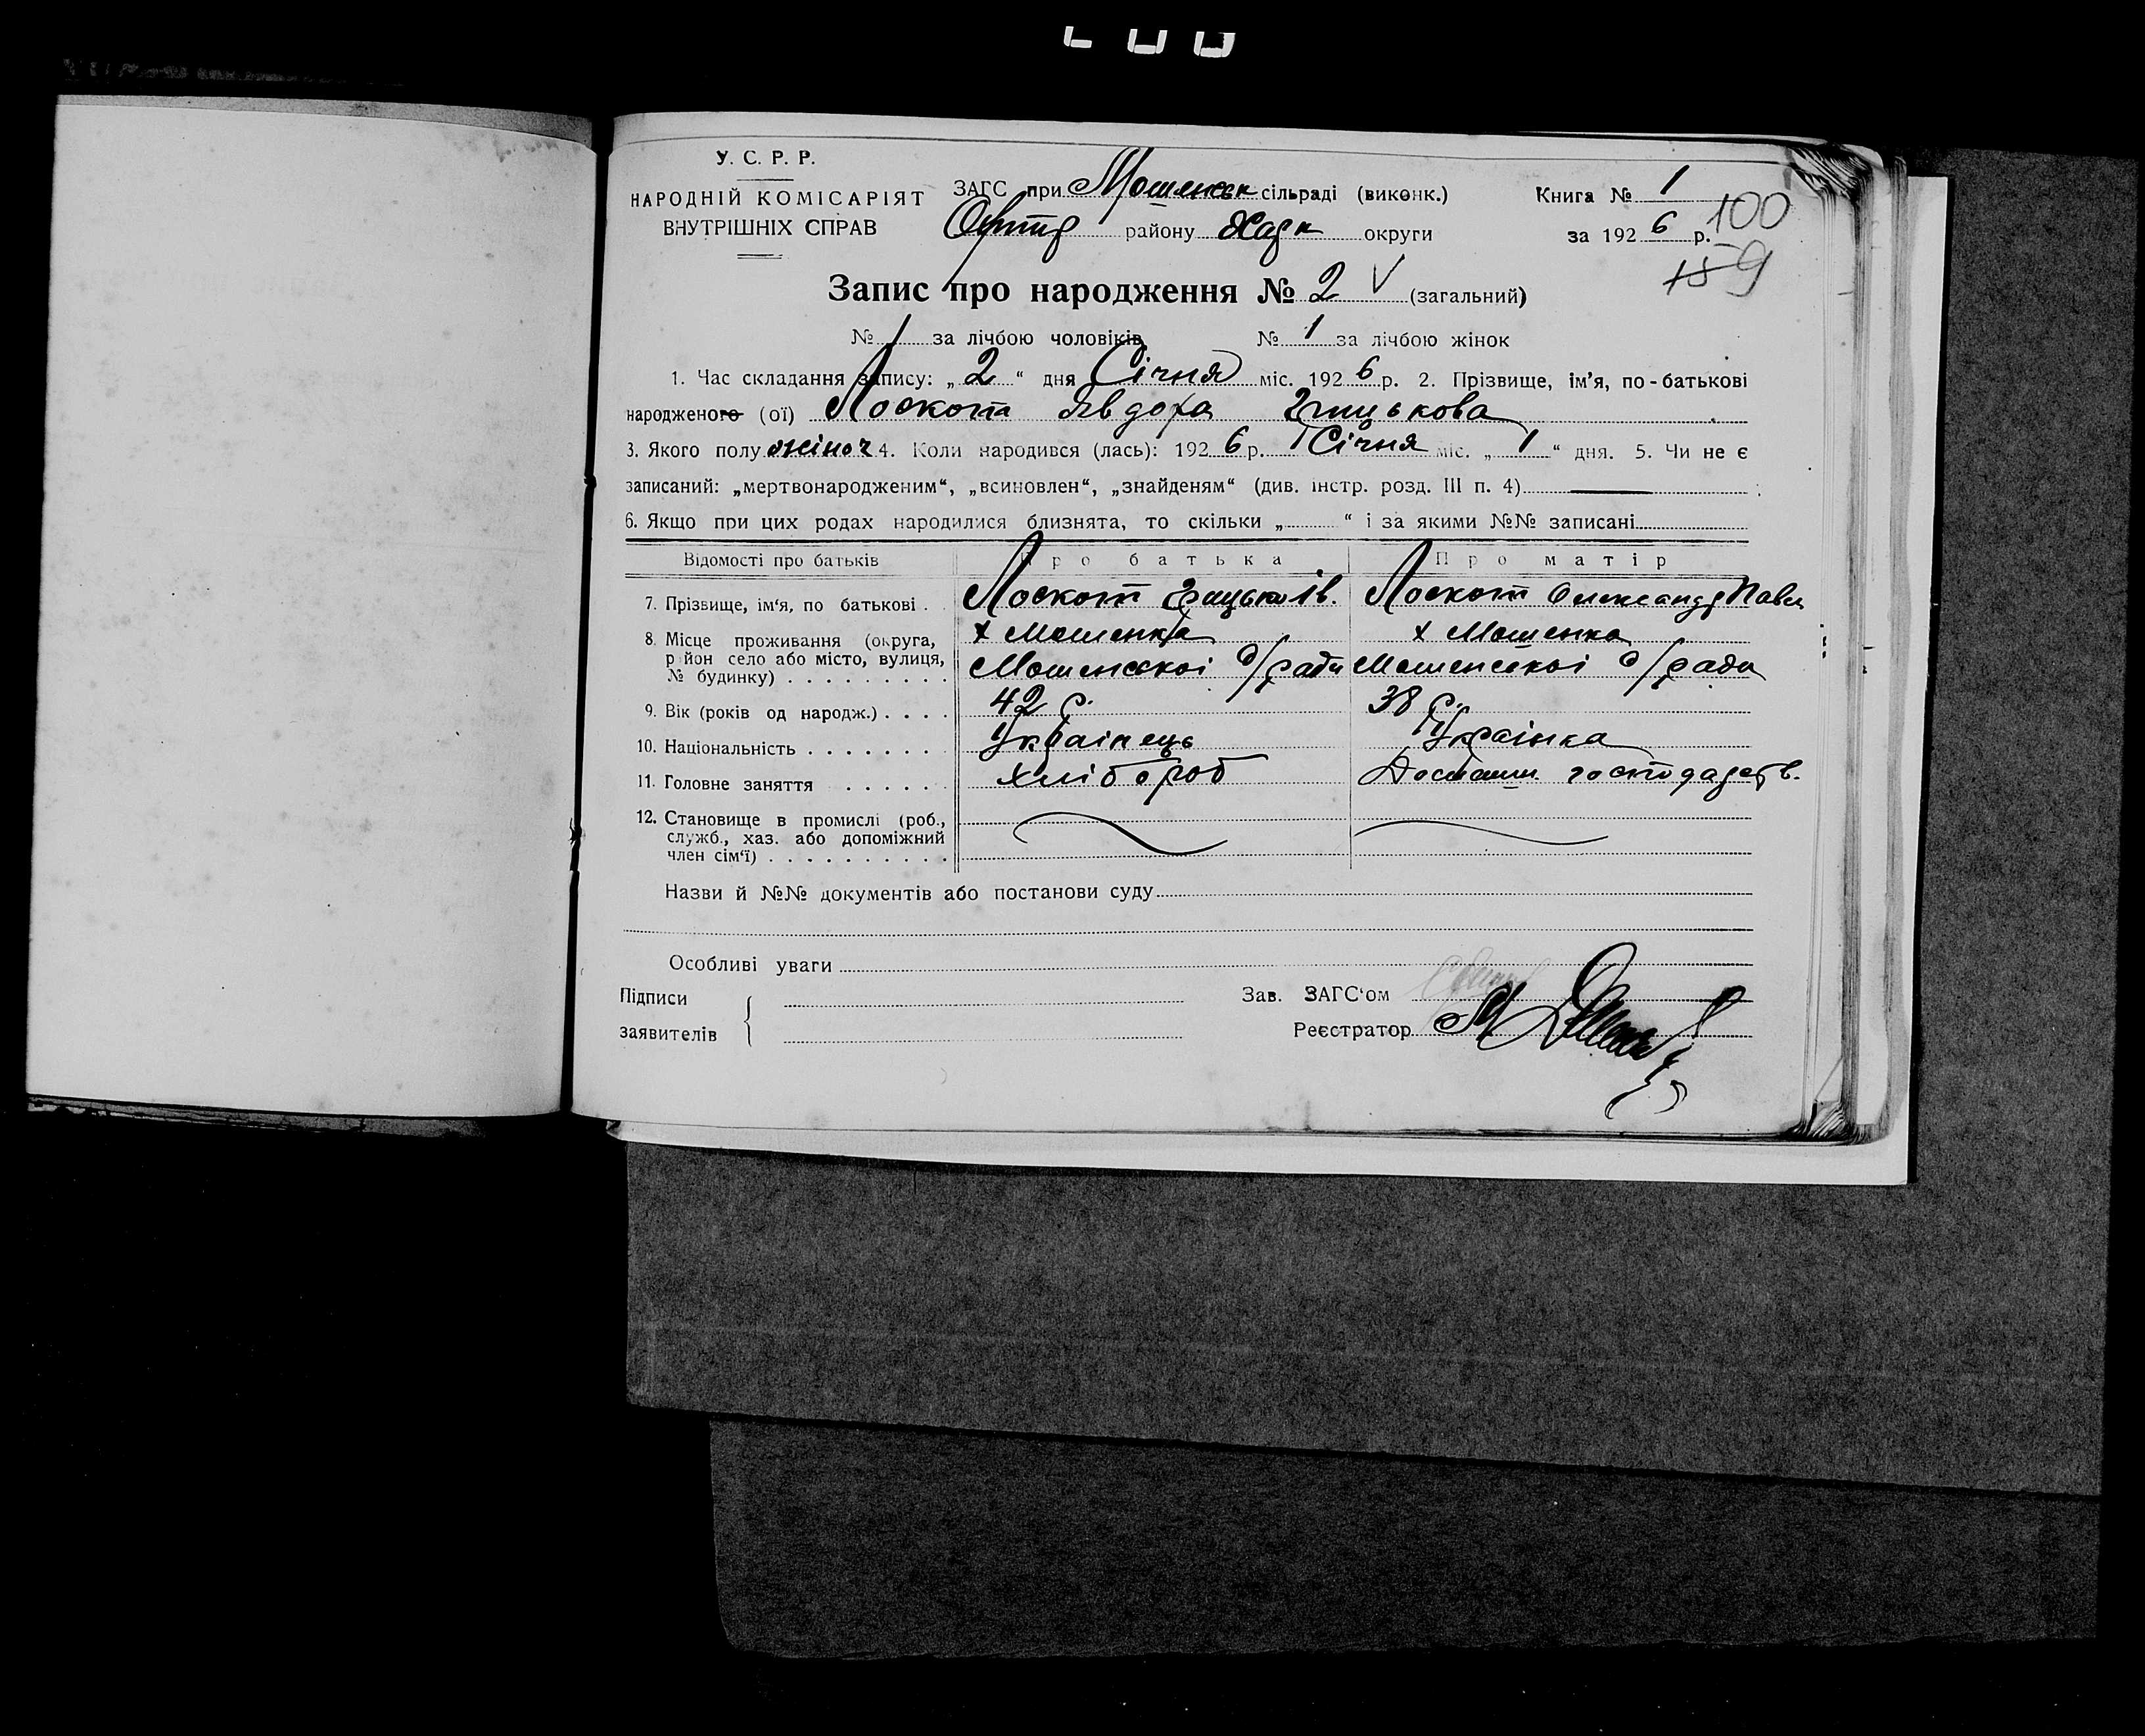 У. С. Р. Р.
НАРОДНІЙ КОМІСАРІЯТ
ВНУТРІШНІХ СПРАВ
ЗАГС при Мошенськ сільраді (виконк.)
району Харк округи
Книга № 1
за 192 6 р.
100
159
Запис про народження № 2 V (загальний)
№ 1 за лічбою чоловіків № 1 за лічбою жінок
1. Час складання запису: „ 2 “ дня Січня міс. 192 6 р. 2. Прізвище, ім'я, по-батькові
народженого (ої) Лоскот Явдоха Грицькова
3. Якого полу жіноч 4. Коли народився (лась): 192 6 р. Січня міс. „ 1 “ дня. 5. Чи не є
записаний: „мертвонародженим“, „всиновлен“, „знайденям“ (див. інстр. розд. III п. 4)
6. Якщо при цих родах народилися близнята, то скільки „ “ і за якими №№ записані
Відомості про батьків Про батька Про матір
7. Прізвище, ім'я, по батькові . Лоскот Лоскот Олександр Павл
8. Місце проживання (округа, х Мошенка х Мошенка
район село або місто, вулиця, Мошенської с/ради Мошенської с/ради
№ будинку) . . . . . . . . .
9. Вік (років од народж.) . . . . 42 р. 38 р.
10. Національність . . . . . . . . Українець Українка
11. Головне заняття . . . . . . Хлібороб Домашн господарств.
12. Становище в промислі (роб.,
служб., хаз. або допоміжний
член сім'ї) . . . . . . . . . .
Назви й №№ документів або постанови суду
Особливі уваги
Підписи
заявителів
Зав. ЗАГС'ом
Реєстратор